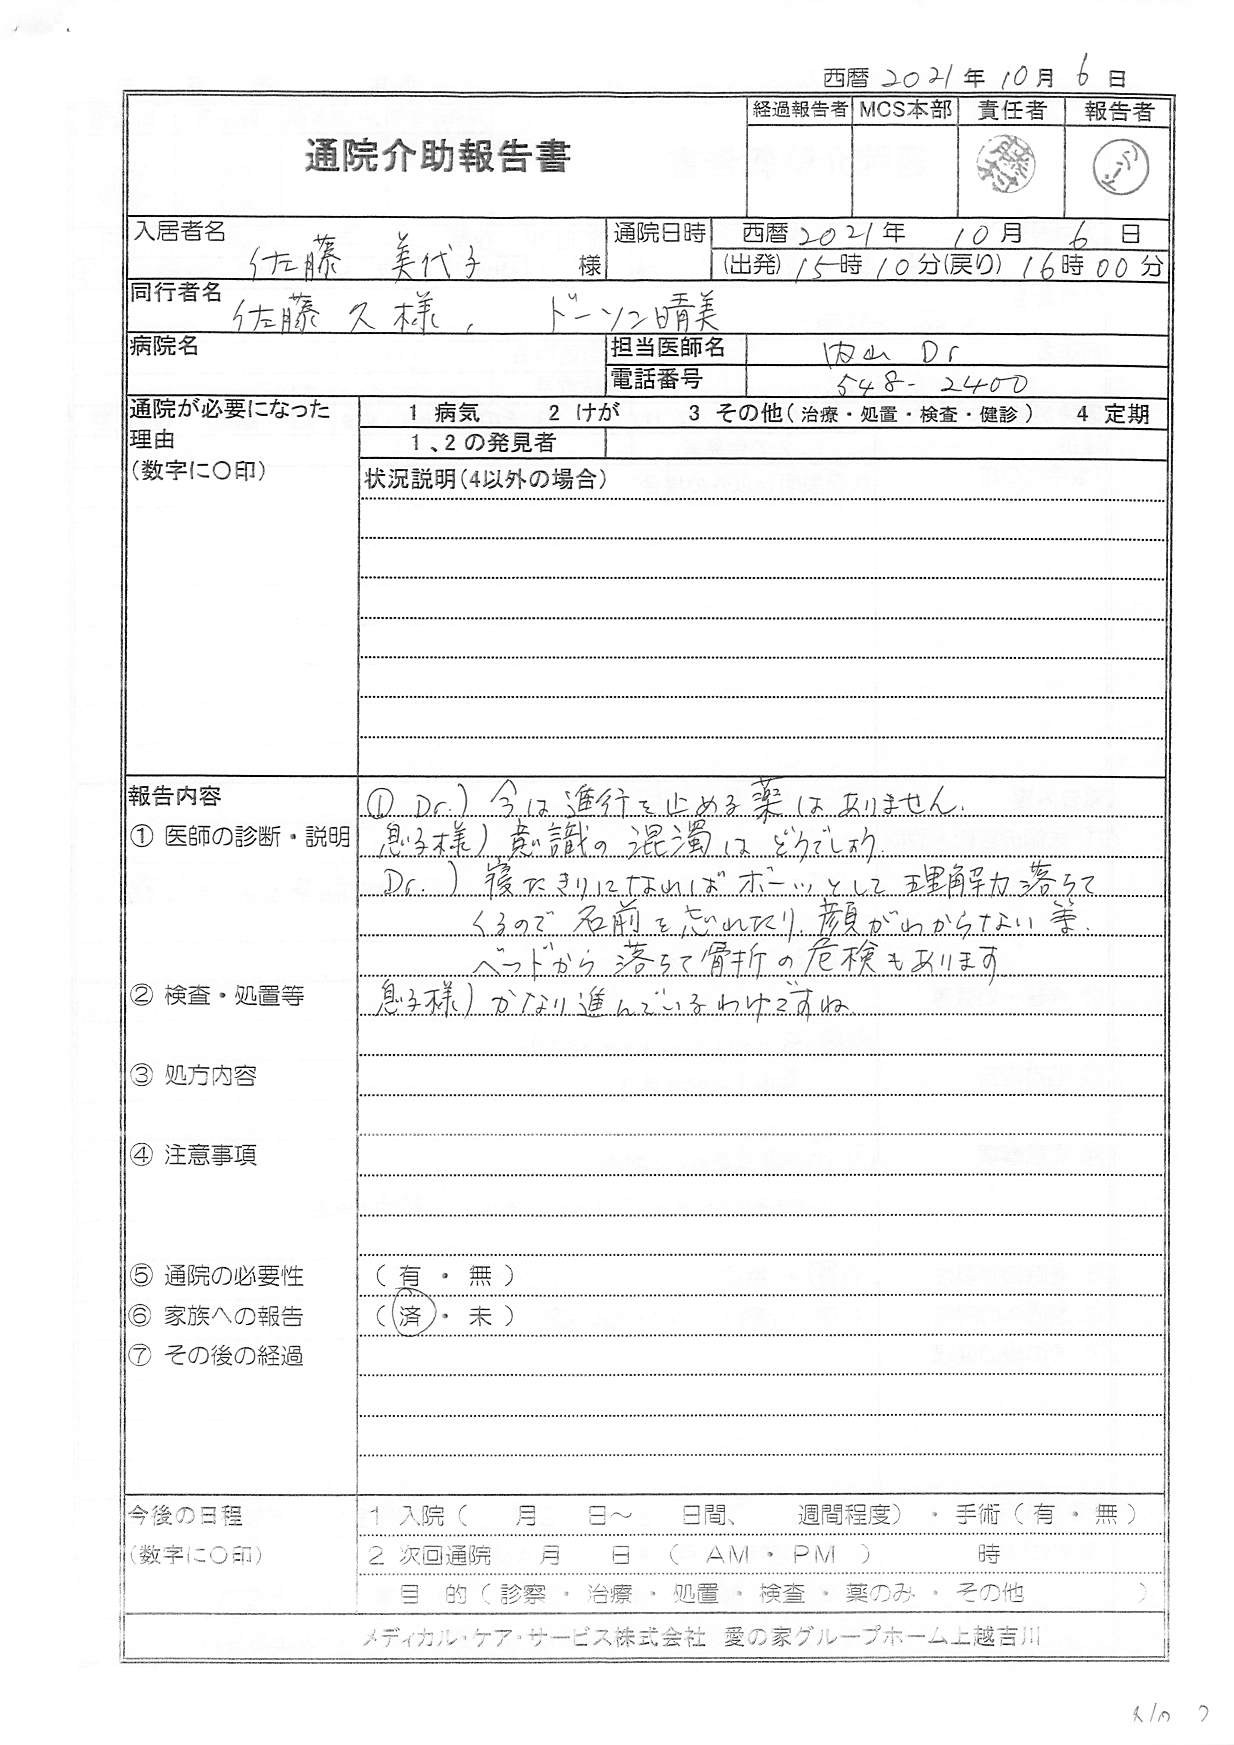 西暦 2021 年 10 月 6 日
通院介助報告書
経過報告者 MCS本部 責任者 報告者
入居者名 佐藤 美代子 様
通院日時 西暦 2021 年 10 月 6 日
(出発) 15 時 10 分(戻り) 16 時 00 分
同行者名 佐藤 久 様、 ドーソン晴美
病院名
担当医師名 内山 Dr
電話番号 548-2400
通院が必要になった
理由
(数字に〇印)
1 病気 2 けが 3 その他(治療・処置・検査・健診) 4 定期
1、2の発見者
状況説明(4以外の場合)
報告内容
① 医師の診断・説明
① Dr.) 今は進行を止める薬はありません.
息子様) 意識の混濁はどうでしょう.
Dr.) 寝たきりになればボーッとして理解力落ちて
くるので名前を忘れたり、顔がわからない等.
ベッドから落ちて骨折の危検もあります
② 検査・処置等
息子様) かなり進んでいるわけですね.
③ 処方内容
④ 注意事項
⑤ 通院の必要性 (有・無)
⑥ 家族への報告 (済・未)
⑦ その後の経過
今後の日程
(数字に〇印)
1 入院( 月 日～ 日間、 週間程度) ・ 手術(有・無)
2 次回通院 月 日 ( AM・PM ) 時
目 的(診察・治療・処置・検査・薬のみ・その他 )
メディカル・ケア・サービス株式会社 愛の家グループホーム上越吉川